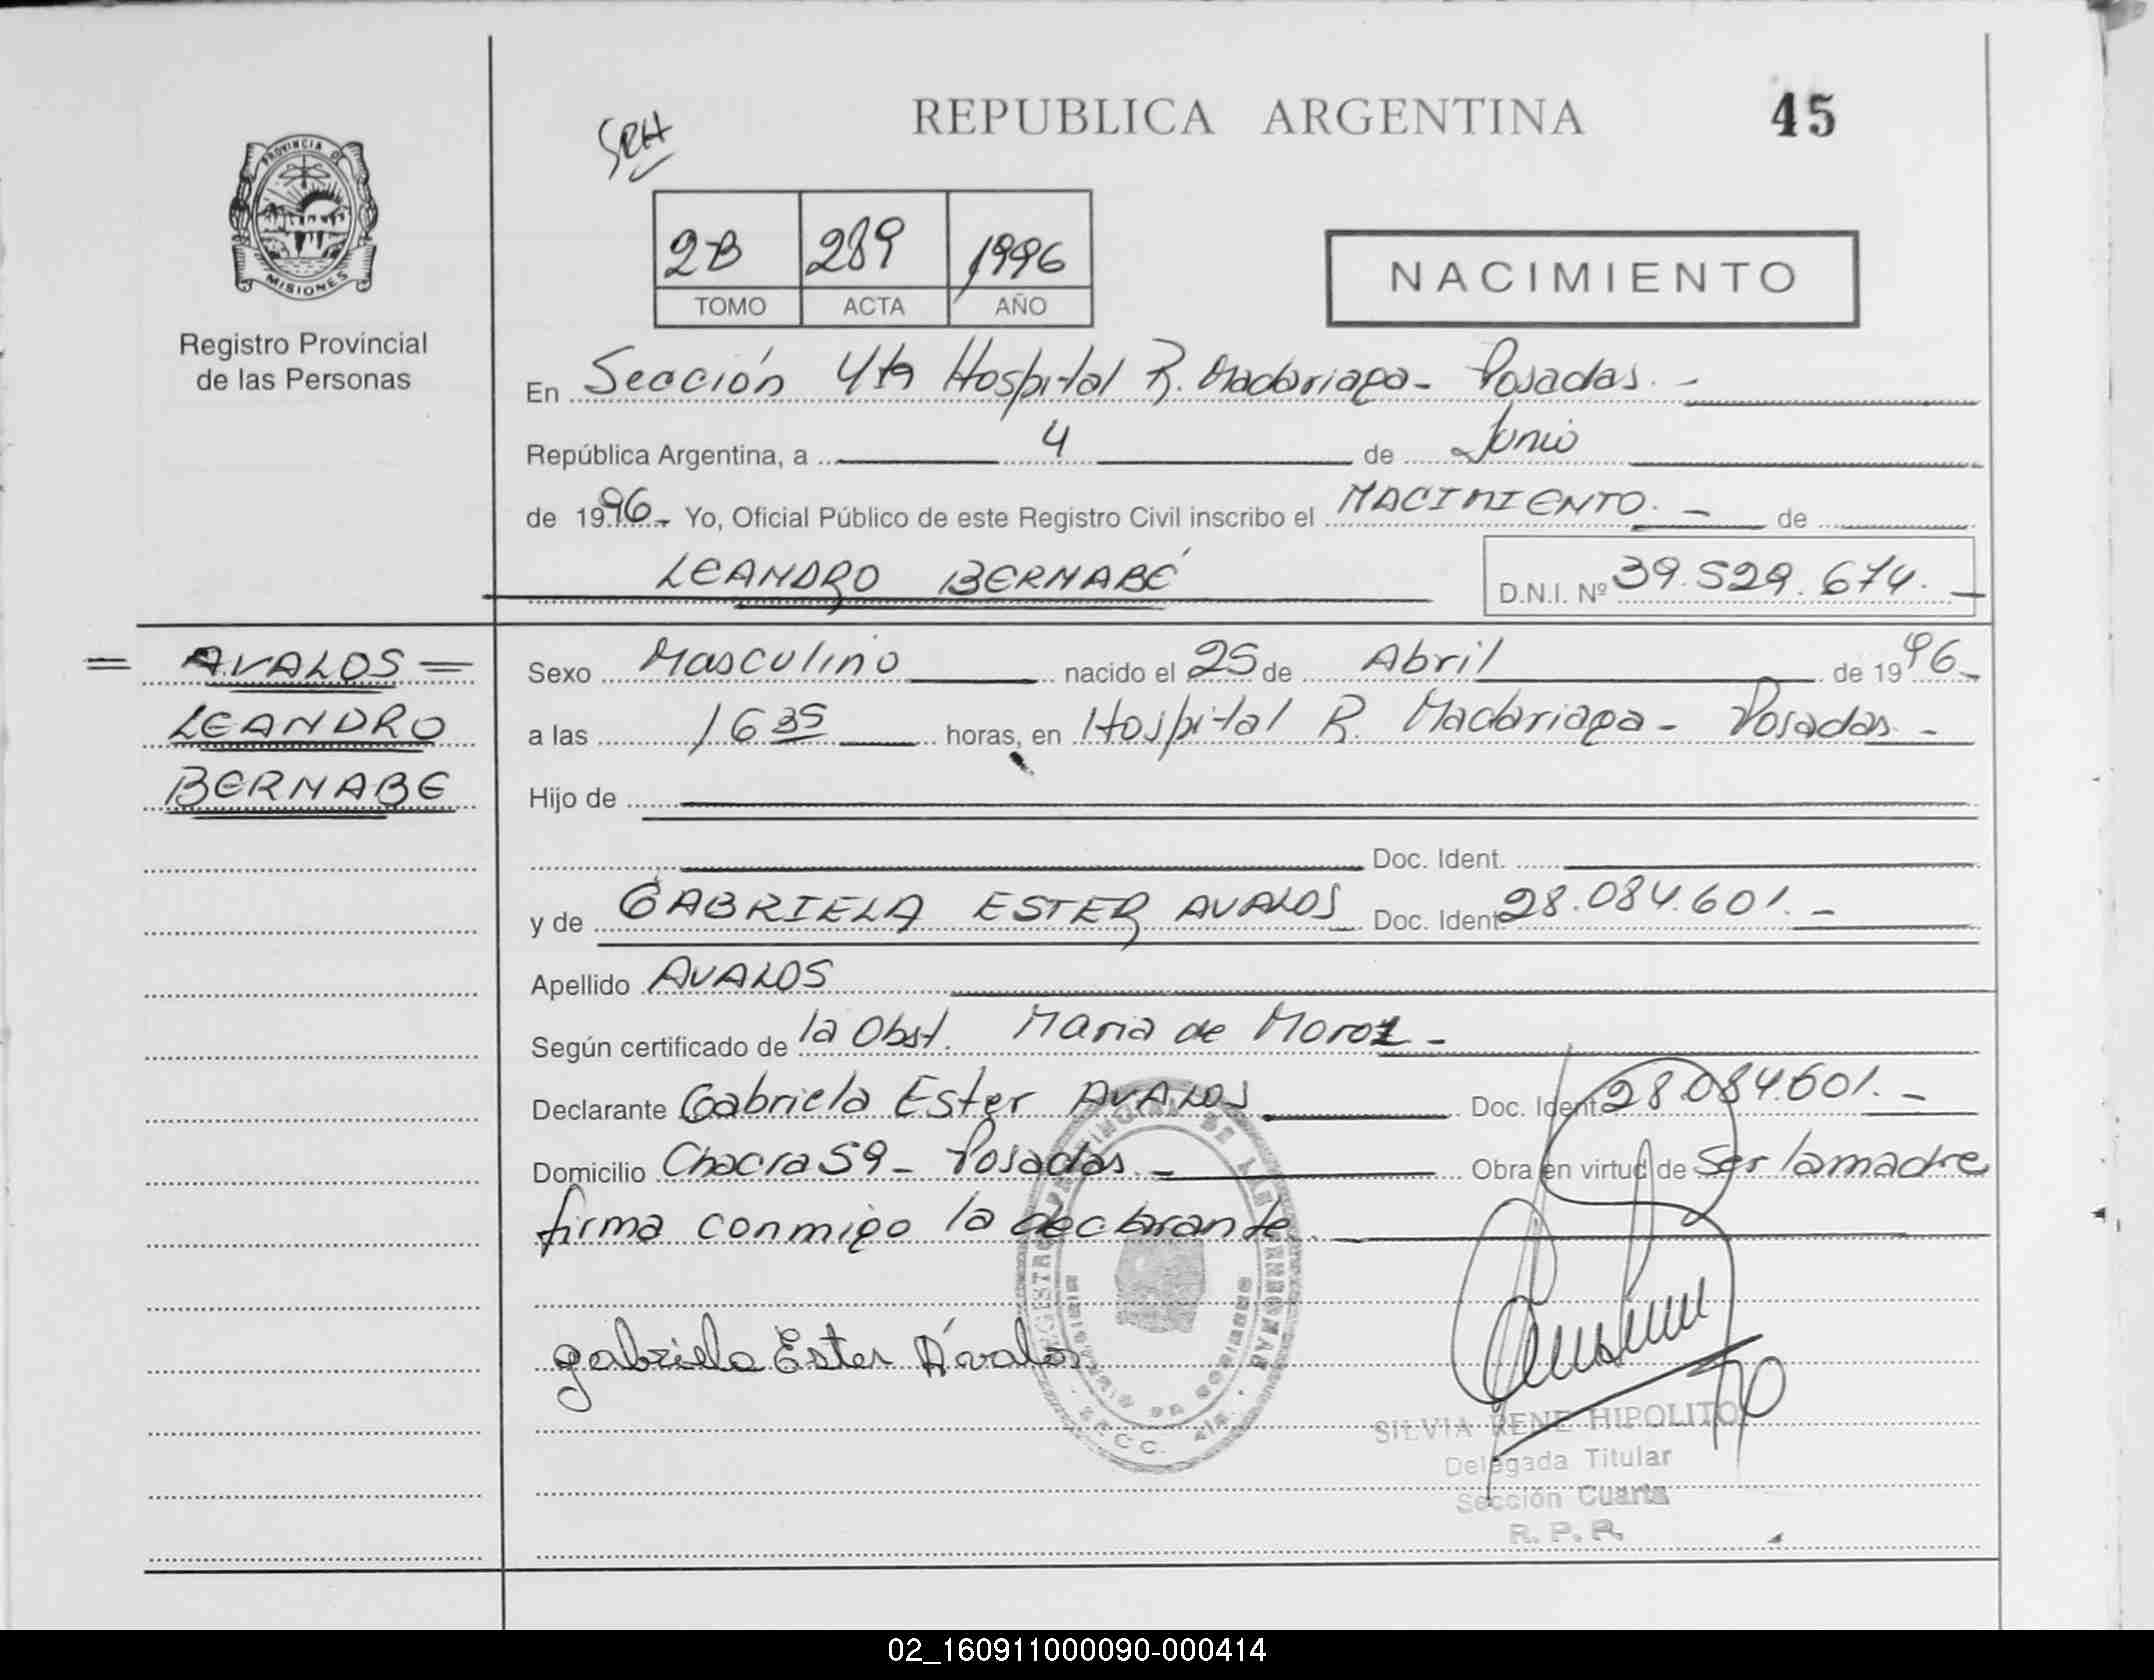 REPUBLICA ARGENTINA
45
SRH
PROVINCIA DE
MISIONES
2B 289 1996
TOMO ACTA AÑO
NACIMIENTO
Registro Provincial
de las Personas
En Sección 4ta Hospital R. Madariaga - Posadas. -
República Argentina, a 4 de Junio
de 1996.- Yo, Oficial Público de este Registro Civil inscribo el NACIMIENTO. - de
LEANDRO BERNABÉ D.N.I. Nº 39.529.674. -
= AVALOS =
LEANDRO
BERNABE
Sexo Masculino nacido el 25 de Abril de 1996 -
a las 16 35 horas, en Hospital R. Madariaga - Posadas. -
Hijo de
Doc. Ident.
y de GABRIELA ESTER AVALOS Doc. Ident 28.084.601. -
Apellido AVALOS
Según certificado de la Obst. Maria de Moroz -
Declarante Gabriela Ester AVALOS Doc. Ident. 28.084.601. -
Domicilio Chacra 59 - Posadas. - Obra en virtud de Ser la madre
firma conmigo la declarante.
gabriela Ester Ávalos
SILVIA RENE HIPOLITO
Delegada Titular
Sección Cuarta
R. P. P.
02_160911000090-000414